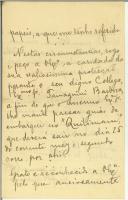 papeis, a que me tenho referido.
Nestas circunstancias, rogo
e peço a V. Exª a caridade da
sua valiosissima protecção
perante o seu digno collega,
Barbosa,
a fim de que o mesmo
me mande passar guia de
embarque no Quilimane,
que deverá sair no dia 25
do corrente mez, e segundo
corre por ahi.
Grato e reconhecido a V. Exª
pelo que anciosamente